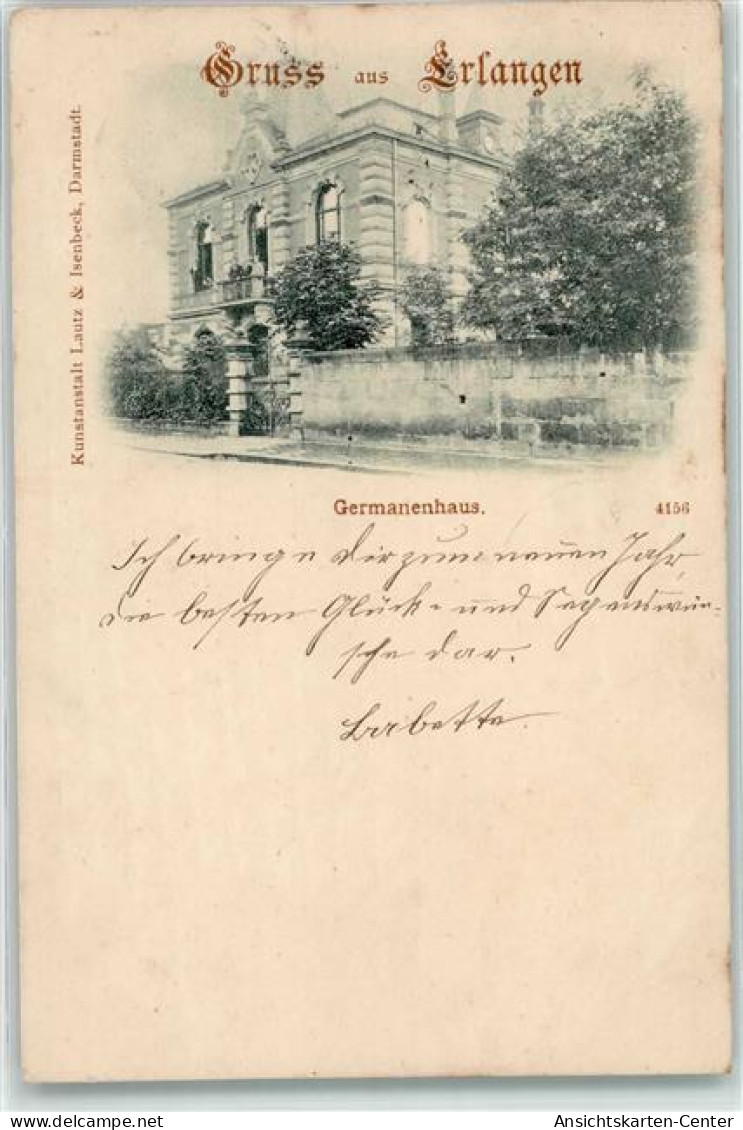 Gruss aus Erlangen
Kunstanstalt Lautz & Isenbeck, Darmstadt.
Germanenhaus. 4156
Ich bringe Dir zum neuen Jahr
die besten Glück- und Segenswün-
sche dar.
Babette.
delcampe.net
Ansichtskarten-Center